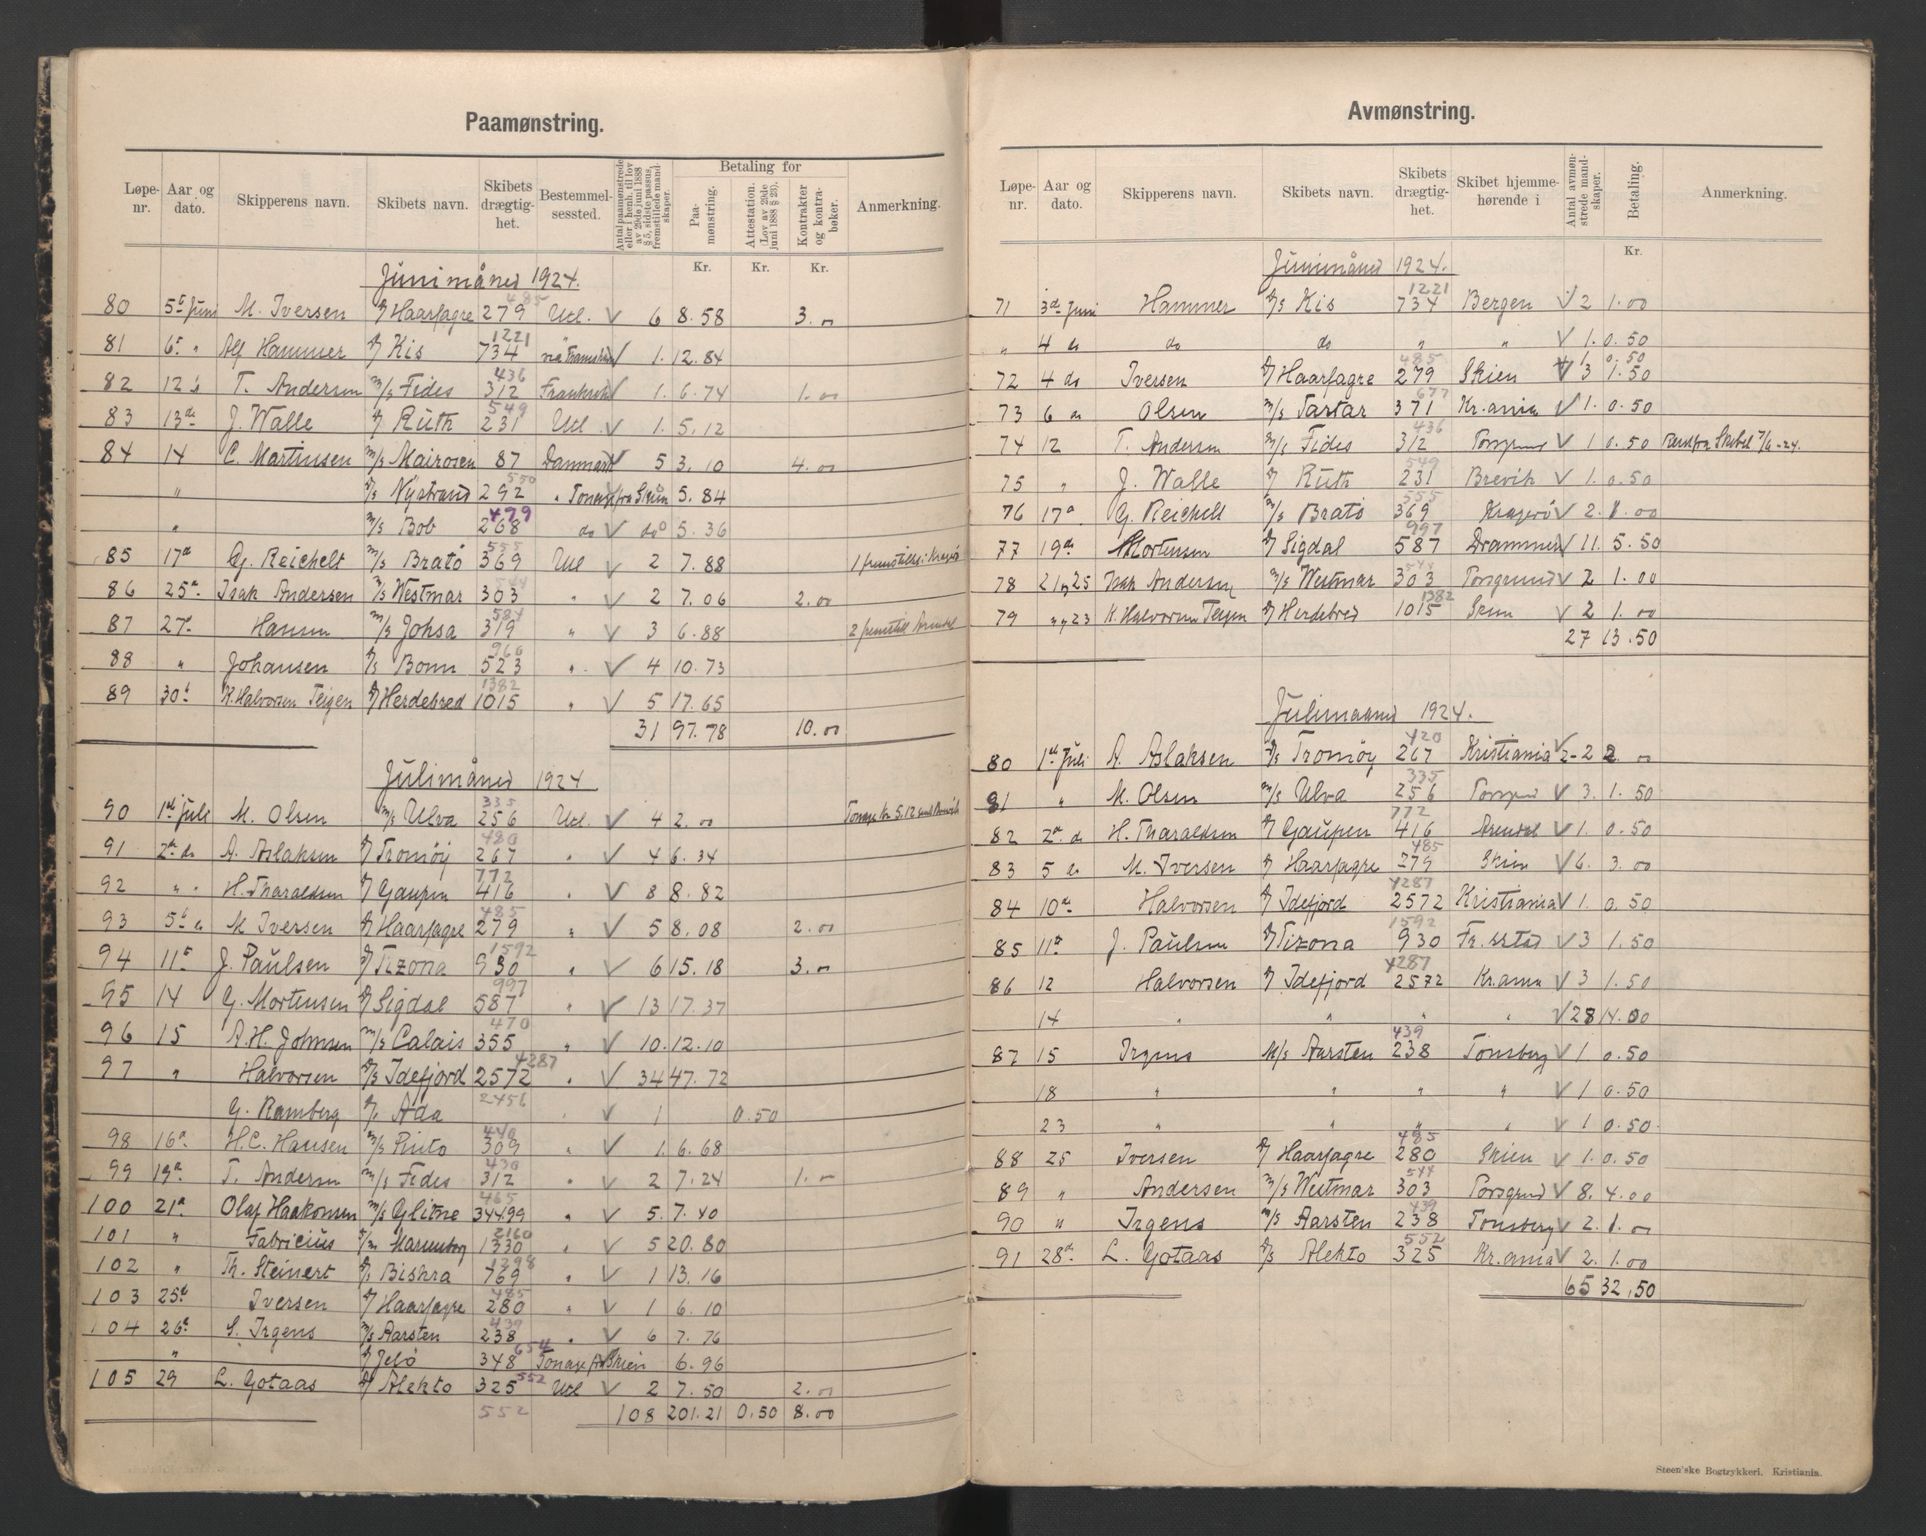 Paamønstring.
Løpe-nr. Aar og dato. Skipperens navn. Skibets navn. Skibets drægtig-het. Bestemmel-sessted. Antal paamønstrede eller henh. til lov av 29de juni 1888 § 5, sidste passus, fremstillede mand-skaper. Betaling for Paa-mønstring. Attestation. (Lov av 29de juni 1888 § 23). Kontrakter og kontra-bøker. Anmerkning.
Kr. Kr. Kr.
Junimåned 1924.
80 5t Juni M. Iversen D/ Haarfagre 279 485 Utl. V 6 8.58 3.00
81 6t " Alf Hammer D/ Kis 734 1221 V 1. 12.84
82 12 T. Andersen M/s Fides 312 436 V 1. 6.74 1.00
83 13de J. Walle D/ Ruth 231 549 Utl. V 1. 5.12
84 14 C. Martinsen M/s Mairosen 87 Danmark V 5 3.10 4.00
" D/s Nystrand 292 550 " Tonage fra Skien 5.84
" M/s Bob 268 479 do V do 5.36
85 17d G. Reichelt M/s Bratø 369 555 Utl V 2 7.88
86 25d Isak Andersen M/s Westmar 303 544 " V 2 7.06 2.00
87 27d Hansen M/s Johsa 319 584 " V 3 6.88
88 " Johansen D/s Bonn 523 966 " V 4 10.73
89 30t K. Halvorsen Teigen D/ Herdebred 1015 1382 " V 5 17.65
31 97.78 10.00
Julimåned 1924
90 1st Juli M. Olsen M/s Ulva 256 335 Utl. V 4 2.00
91 2den do A. Aslaksen D/ Tromøy 267 420 " V 4 6.34
92 " " H. Tharaldsen D/ Gaupen 416 772 " V 8 8.82
93 5t do M Iversen D/ Haarfagre 279 485 " V 5 8.08 2.00
94 11t J. Paulsen D/ Tizona 930 1592 " V 6 15.18 3.00
95 14 G. Mortensen D/ Sigdal 587 997 " V 13 17.37
96 15 A.H. Johnsen M/s Calais 355 470 " V 10. 12.10
97 " Halvorsen D/s Idefjord 2572 4287 " V 34 47.72
G. Ramberg D/s Ada 2456 " V 1 0.50
98 16d H.C. Hansen M/s Pluto 309 440 " V 1. 6.68
99 19d T. Andersen M/s Fides 312 436 " V 2 7.24 1.00
100 21d Olaf Haakonsen M/s Glitne 344.99 465 " V 5. 7.40
101 " Fabricius 1330 2160 " V 5 20.80
102 " Th. Steinert D/s Biskra 769 1298 " V 1 13.16
103 25d Iversen D/ Haarfagre 280 485 " V 1 6.10
104 26d S. Irgens M/s Aarsten 238 439 " V 6 7.76
" D/ Jelø 348 654 Tonage fra Skien 6.96
105 29 L. Gotaas D/ Alekto 325 552 Utl V 2 7.50 2.00
552 108 201.21 0.50 8.00
Avmønstring.
Løpe-nr. Aar og dato. Skipperens navn. Skibets navn. Skibets drægtig-het. Skibet hjemme-hørende i Antal avmøn-strede mand-skaper. Betaling. Anmerkning.
Kr.
Junimåned 1924.
71 3d Juni Hammer D/s Kis 734 1221 Bergen V 2 1.00
" 4 do do do " " V 1. 0.50
72 4 do Iversen D/ Haarfagre 279 485 Skien V 1 3 0.50 1.50
73 6 do Olsen M/s Tartar 371 677 Kr.ania V 1. 0.50
74 12 T. Andersen M/s Fides 312 436 Porsgrund V 1 0.50
75 " J. Walle D/ Ruth 231 549 Brevik V 1. 0.50
76 17d G. Reichelt M/s Bratø 369 555 Kragerø V 2. 1.00
77 19d Mortensen D/ Sigdal 587 997 Drammen V 11. 5.50
78 21 og 25 Isak Andersen M/s Westmar 303 544 Porsgrund V 2 1.00
79 " og 23 K. Halvorsen Teigen D/ Herdebred 1015 1382 Skien V 2 1.00
27 13.50
Julimaaned 1924.
80 1st Juli A. Aslaksen D/s Tromøy 267 420 Kristiania V 2-2 2.00
81 " M. Olsen M/s Ulva 256 335 Porsgrund V 3. 1.50
82 2d do H. Tharaldsen D/ Gaupen 416 772 Arendal V 1. 0.50
83 5 do M. Iversen D/ Haarfagre 279 485 Skien V 6. 3.00
84 10d Halvorsen D/ Idefjord 2572 4287 Kristiania V 1. 0.50
85 11t J. Paulsen D/ Tizona 930 1592 Fr.stad V 3 1.50
86 12 Halvorsen D/ Idefjord 2572 4287 Kr.ania V 3 1.50
14 " " " " V 28 14.00
87 15 Irgens M/s Aarsten 238 439 Tønsberg V 1 0.50
18 " " " " V 1 0.50
23 " " " " V 1 0.50
88 25 Iversen D/ Haarfagre 280 485 Skien V 1. 0.50
89 " Andersen M/s Westmar 303 544 Porsgrund V 8. 4.00
90 " Irgens M/s Aarsten 238 439 Tønsberg V 2. 1.00
91 28d L. Gotaas D/s Alekto 325 552 Kr.ania V 2. 1.00
65 32.50
Steen'ske Bogtrykkeri. Kristiania.